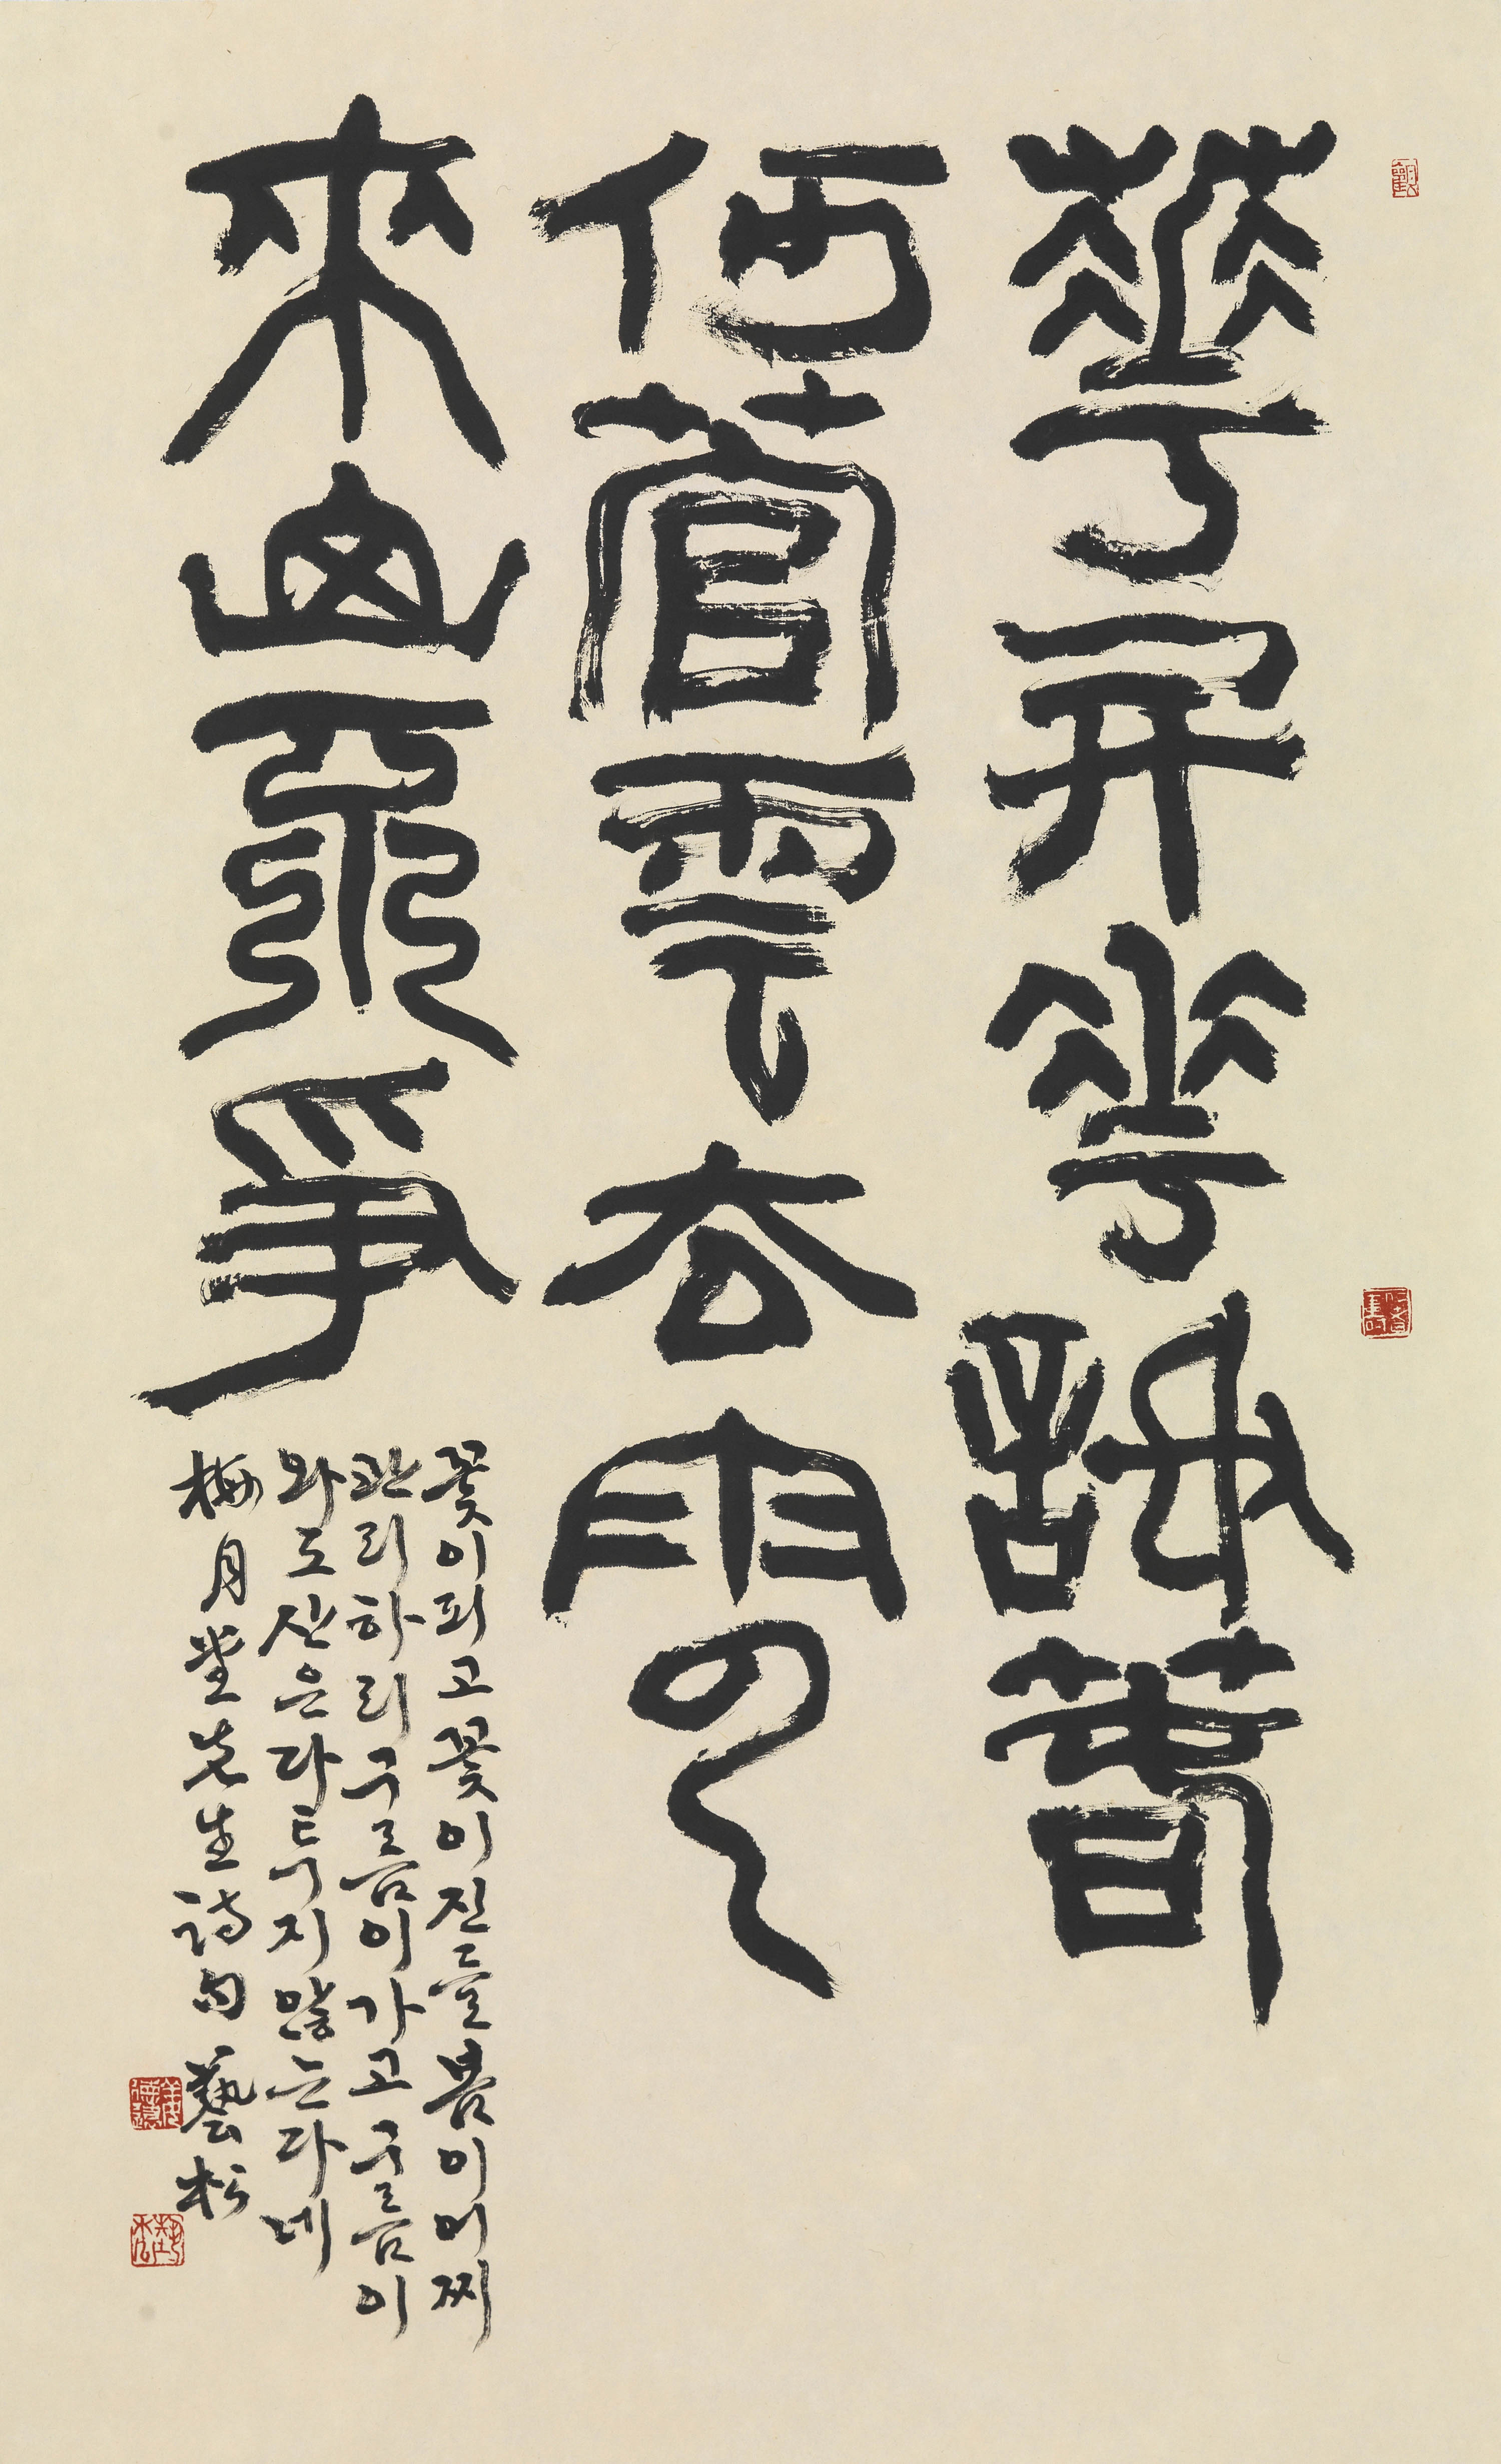 華開花謝春
何管雲去雲
來山不爭
꽃이피고꽃이진들봄이어찌
관리하리구름이가고구름이
와도산은다투지않는다네
梅月堂先生詩句 藝松